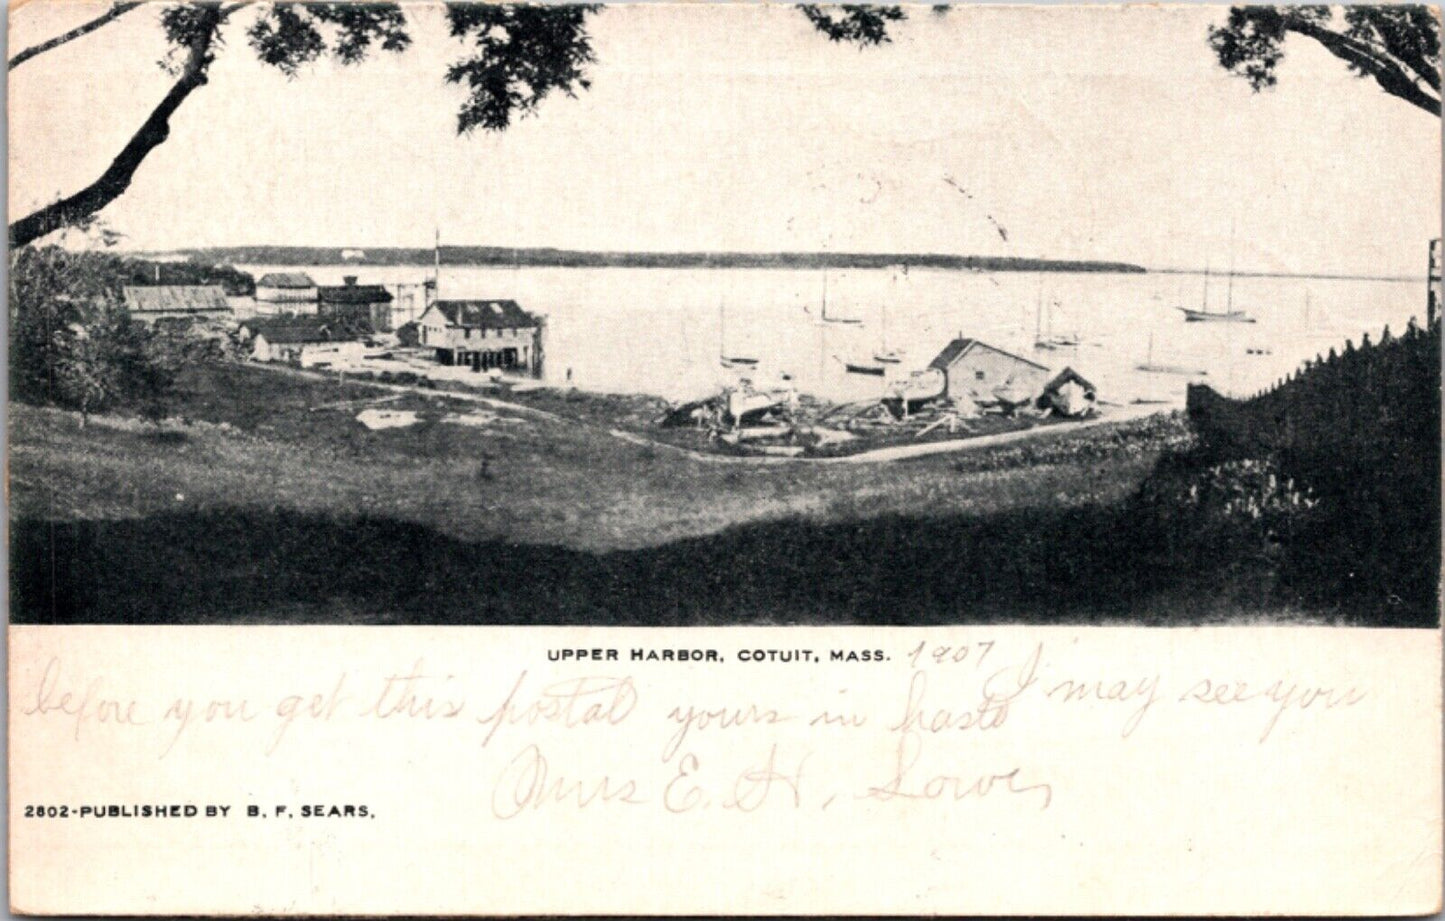 UPPER HARBOR, COTUIT, MASS. 1907
I may see you
before you get this postal yours in haste
Mrs E. H. Lowe
2802-PUBLISHED BY B. F. SEARS.